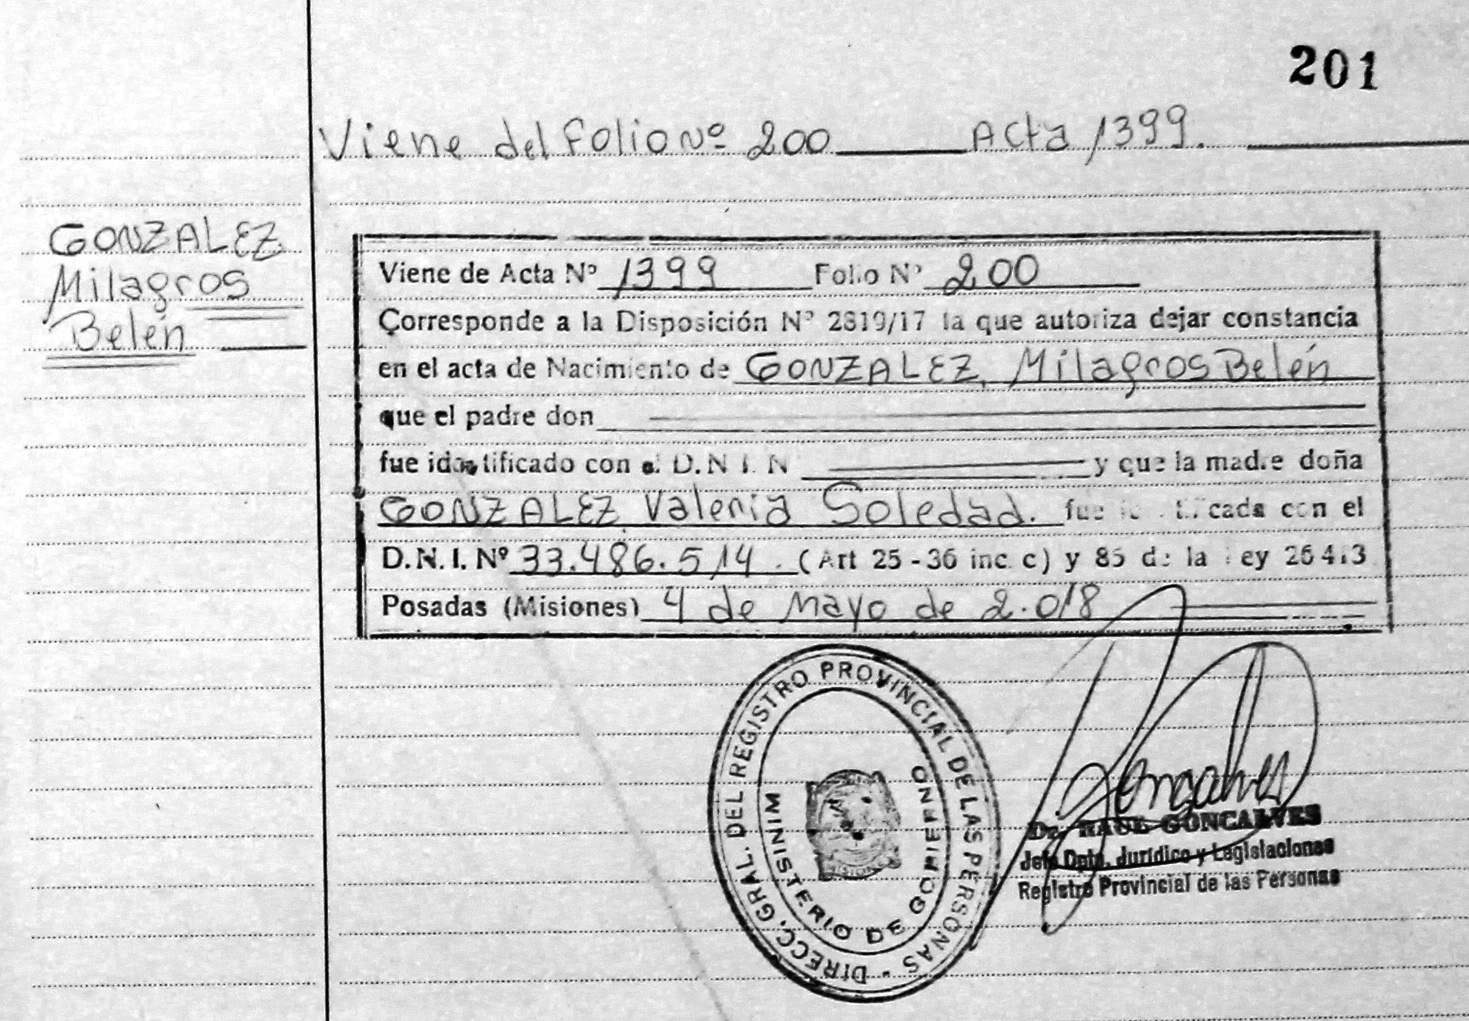 201
Viene del Folio Nº 200 Acta 1399.
GONZALEZ
Milagros
Belén
Viene de Acta Nº 1399 Folio Nº 200
Corresponde a la Disposición Nº 2819/17 la que autoriza dejar constancia
en el acta de Nacimiento de GONZALEZ, Milagros Belén
que el padre don
fue identificado con el D.N.I. N y que la madre doña
GONZALEZ, Valeria Soledad. fue identificada con el
D.N.I. Nº 33.486.514. (Art 25-36 inc c) y 85 de la Ley 26413
Posadas (Misiones) 4 de Mayo de 2.018
DIRECC. GRAL. DEL REGISTRO PROVINCIAL DE LAS PERSONAS -
MINISTERIO DE GOBIERNO
MISIONES
Goncalves
Dr. RAUL GONCALVES
Jefe Dpto. Jurídico y Legislaciones
Registro Provincial de las Personas